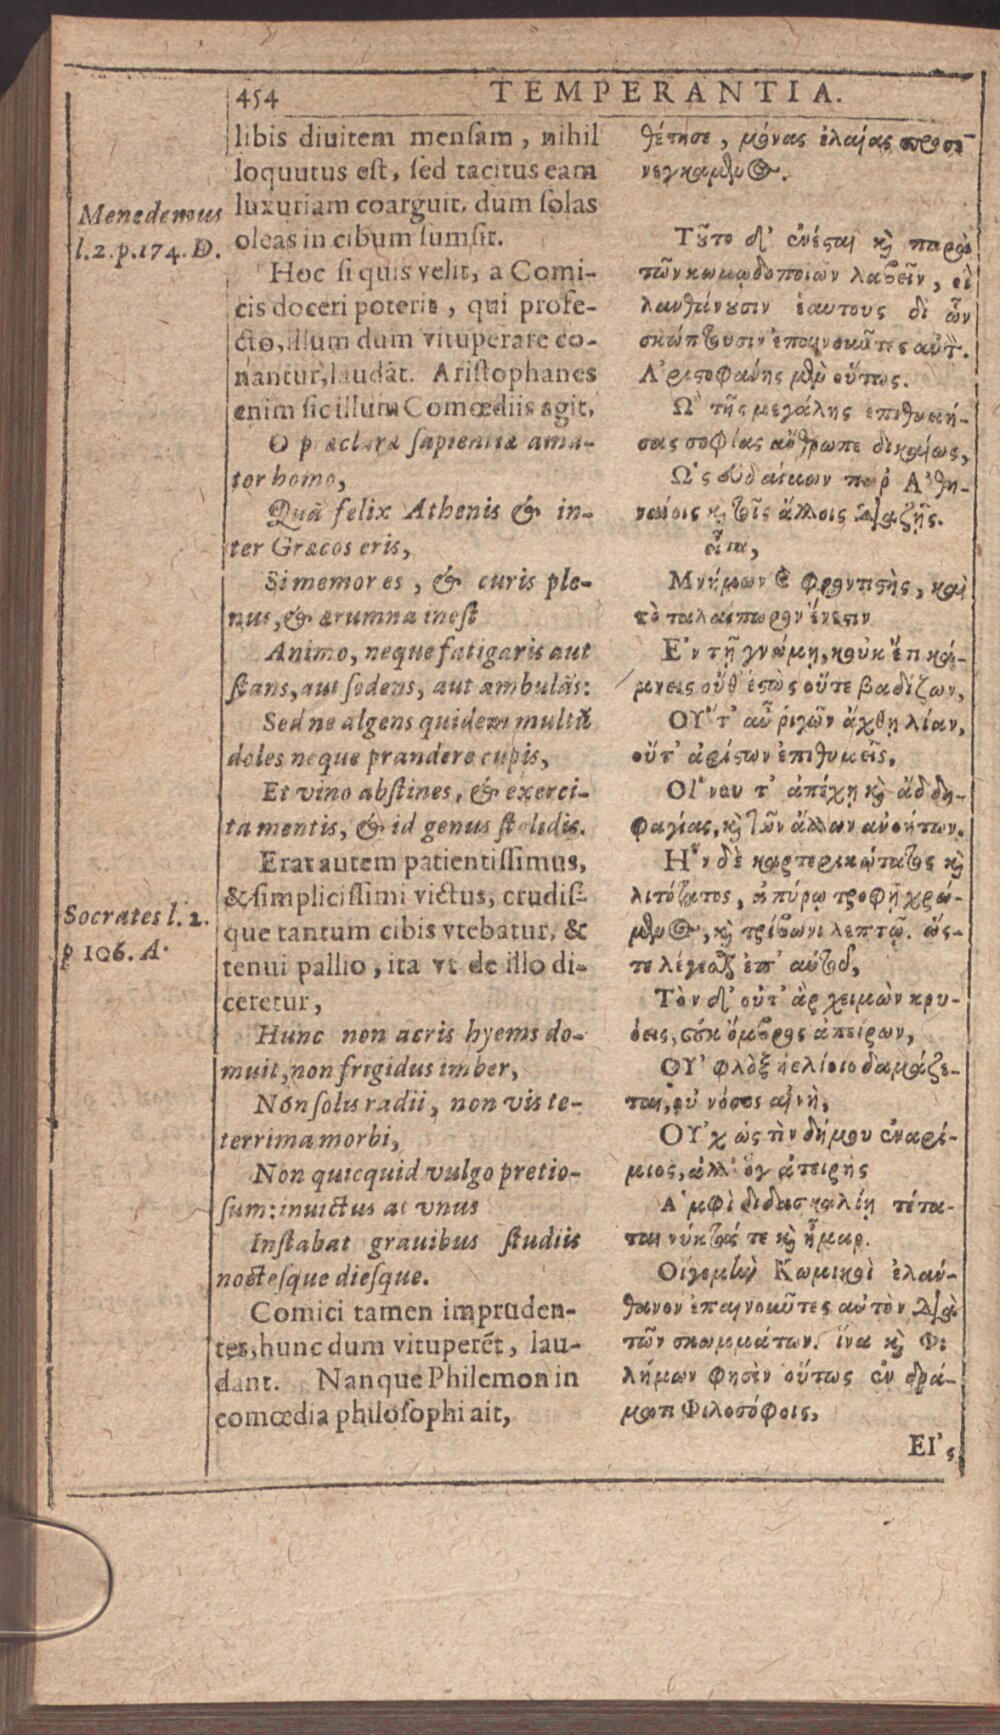 454
TEMPERANTIA.
Menedemus
l.2.p.174.D.
Socrates l. 2.
p 106. A.
libis diuitem mensam, nihil
loquutus est, sed tacitus eam
luxuriam coarguit, dum solas
oleas in cibum sumsit.
Hoc si quis velit, a Comi-
cis doceri poteris, qui profe-
cto, illum dum vituperare co-
nantur, laudãt. Aristophanes
enim sic illum Comœdiis agit,
O præclaræ sapientiæ ama-
tor homo,
Quã felix Athenis & in-
ter Græcos eris,
Si memor es, & curis ple-
nus, & ærumna inest
Animo, neque fatigaris aut
stans, aut sedens, aut ambulãs:
Sed ne algens quidem multũ
doles neque prandere cupis,
Et vino abstines, & exerci-
tamentis, & id genus stolidis.
Erat autem patientissimus,
& simplicissimi victus, crudis-
que tantum cibis vtebatur, &
tenui pallio, ita vt de illo di-
ceretur,
Hunc non acris hyems do-
muit, non frigidus imber,
Non solis radii, non vis te-
terrima morbi,
Non quicquid vulgo pretio-
sum: inuictus at vnus
Instabat grauibus studiis
noctesque diesque.
Comici tamen impruden-
tes, hunc dum vituperẽt, lau-
dant. Nanque Philemon in
comœdia philosophi ait,
θέτησε, μόνας ἐλαίας προσε-
νεγκαμϐυος.
Τοῦτο δ' ἐνέςαι κὶ παρὰ
τῶν κωμῳδοποιῶν λαβεῖν, οἳ
λανθάνουσιν ἑαυτους δι' ὧν
σκώπτουσιν ἐπαινοῦντες αὐτ.
Ἀριςοφάνης μὲν οὕτως.
Ὦ τῆς μεγάλης ἐπιθυμή-
σας σοφίας ἄνθρωπε δικαίως,
Ὡς εὐδαίμων παρ' Ἀθη-
ναίοις κὶ τοῖς ἄλλοις διαζῇς.
εἶτα,
Μνήμων εἶ φροντιςὴς, καὶ
τὸ ταλαίπωρον ἔνεςιν
Ἐν τῇ γνώμῃ, κοὐκ ἔτι κά-
μνεις οὔθ' ἑςὼς οὔτε βαδίζων,
Οὔτ' αὖ ῥιγῶν ἄχθῃ λίαν,
οὔτ' ἀρίςων ἐπιθυμεῖς,
Οἴνου τ' ἀπέχῃ κὶ ἀδδη-
φαγίας, κὶ τῶν ἄλλων ἀνοήτων.
Ἦν δὲ καρτερικώτατος κὶ
λιτότατος, ἀπύρῳ τροφῇ χρώ-
μενος, κὶ τρίβωνι λεπτῷ. ὥς-
τε λέγεσθαι ἐπ' αὐτοῦ,
Τὸν δ' οὔτ' ἂρ χειμὼν κρυ-
όεις, οὐκ ὄμβρος ἀπείρων,
Οὐ φλὸξ ἠελίοιο δαμάζε-
ται, οὐ νόσος αἰνὴ,
Οὐχ ὡς τὶν δήμου ἐναρί-
μιος, ἀλλ' ὅγ' ἀτειρὴς
Ἀμφὶ διδασκαλίῃ τέτα-
ται νύκτας τε κὶ ἦμαρ.
Οἱ γε μὲν Κωμικοὶ ἐλάν-
θανον ἐπαινοῦντες αὐτὸν διὰ
τῶν σκωμμάτων. ἵνα κὶ Φι
λήμων φησὶν οὕτως ἐν δρά-
ματι Φιλοσόφοις,
ΕΙ'ς